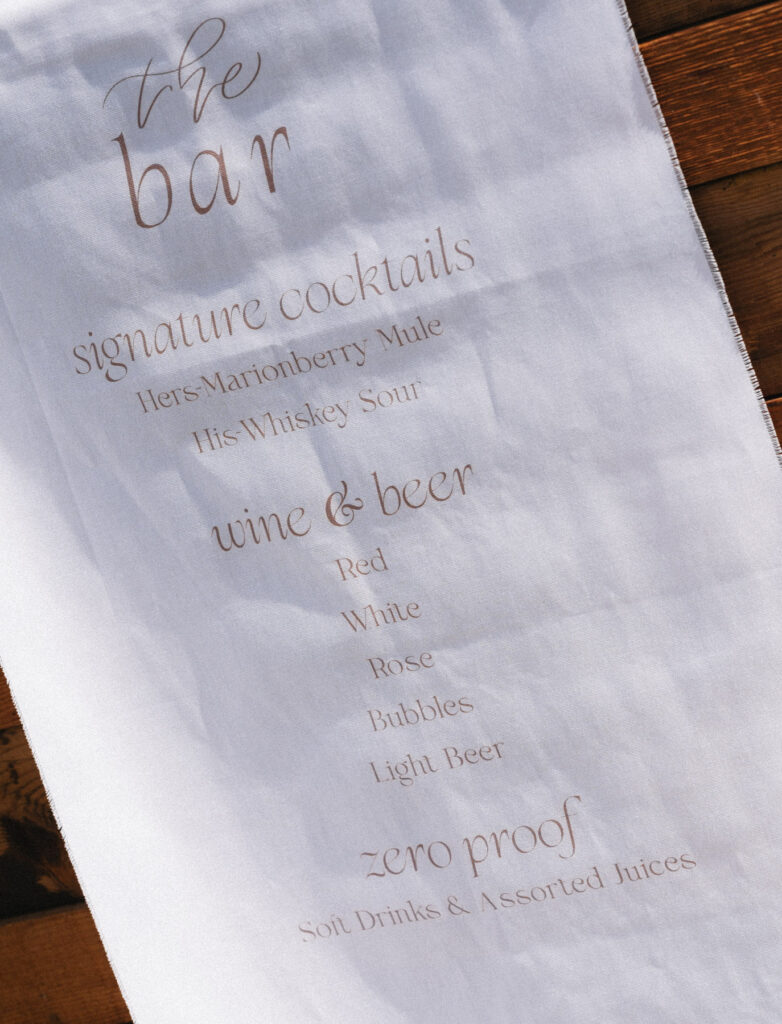 the
bar
signature cocktails
Hers-Marionberry Mule
His-Whiskey Sour
wine & beer
Red
White
Rose
Bubbles
Light Beer
zero proof
Soft Drinks & Assorted Juices